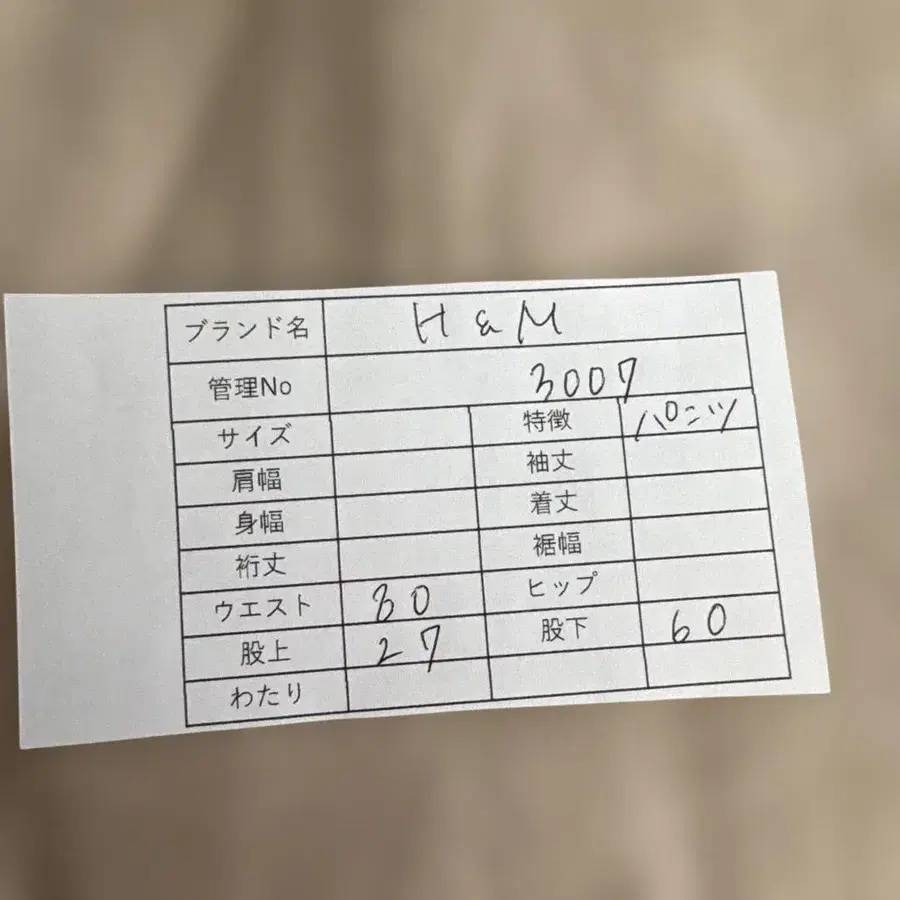 ブランド名 H & M
管理No 3007
サイズ 特徴 パンツ
肩幅 袖丈
身幅 着丈
裄丈 裾幅
ウエスト 80 ヒップ
股上 27 股下 60
わたり